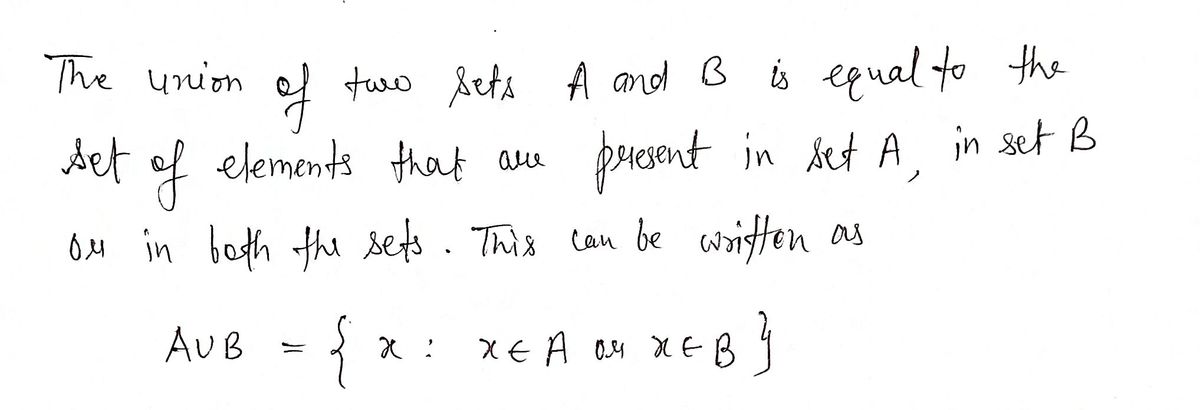 The union of two sets A and B is equal to the
set of elements that are present in set A, in set B
or in both the sets. This can be written as
A∪B = { x : x ∈ A or x ∈ B }